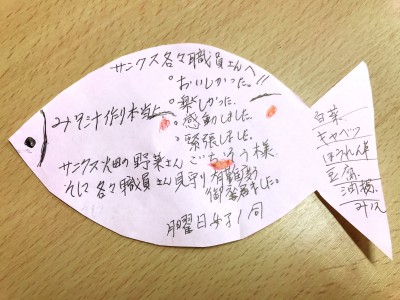 サンクス各々職員さんへ
。おいしかった。!!
。楽しかった。
みそ汁作り本当に
。感動しました。
。緊張しました。
サンクス畑の野菜さん ごちそう様
それに各々職員さん見守り 有難度う
御座居ました。
月曜日女子一同
白菜
キャベツ
ほうれん草
豆腐
油揚
みそ